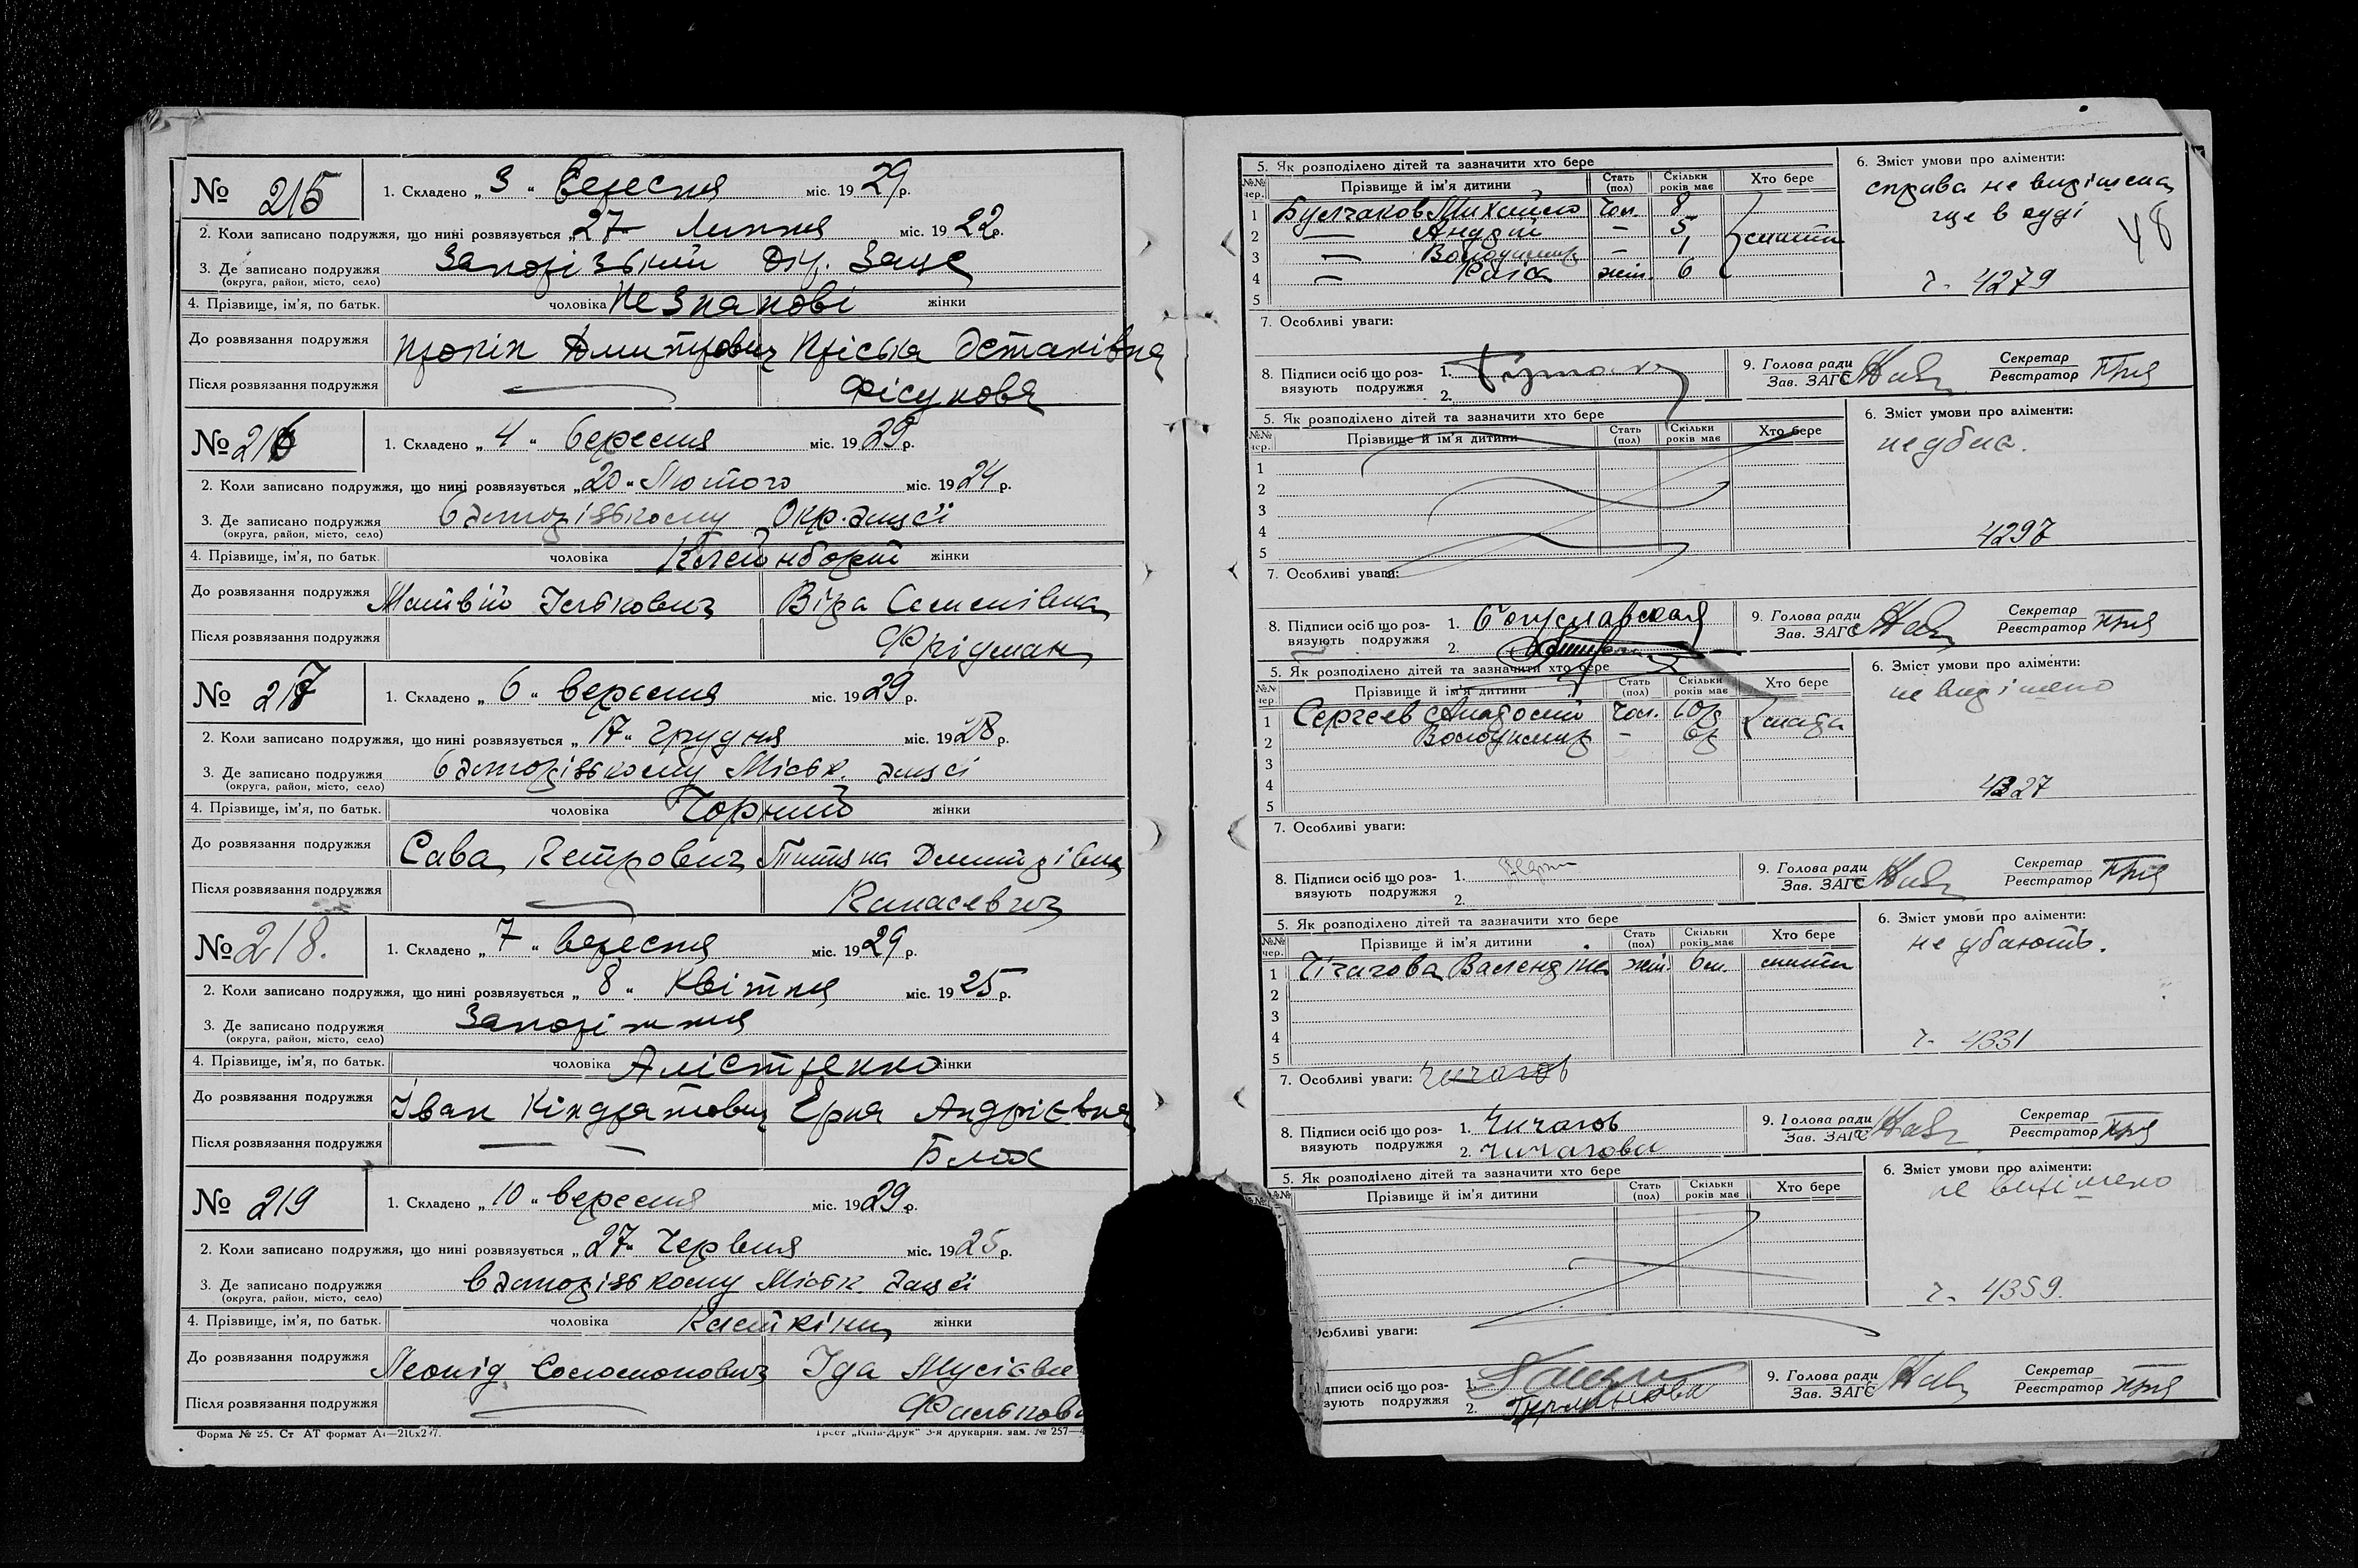 № 215
1. Складено „ 3 “ вересня міс. 1929 р.
2. Коли записано подружжя, що нині розвязується „ 27 “ Липня міс. 1922 р.
3. Де записано подружжя Запорізький
(округа, район, місто, село)
4. Прізвище, ім’я, по батьк. чоловіка Незнанові жінки
До розвязання подружжя Прокіп Дмитрович Пріська Остапівна
Після розвязання подружжя — Фісунова
№ 216
1. Складено „ 4 “ вересня міс. 1929 р.
2. Коли записано подружжя, що нині розвязується „ 20 “ Лютого міс. 1924 р.
3. Де записано подружжя в Запорізькому Окр. Загсі
(округа, район, місто, село)
4. Прізвище, ім’я, по батьк. чоловіка жінки
До розвязання подружжя Матвій Ількович Віра Семенівна
Після розвязання подружжя Фрідман
№ 217
1. Складено „ 6 “ вересня міс. 1929 р.
2. Коли записано подружжя, що нині розвязується „ 17 “ Грудня міс. 1928 р.
3. Де записано подружжя в Запорізькому Міськ. Загсі
(округа, район, місто, село)
4. Прізвище, ім’я, по батьк. чоловіка Чорний жінки
До розвязання подружжя Сава Петрович Титяна Демидівна
Після розвязання подружжя — Канасевич
№ 218.
1. Складено „ 7 “ вересня міс. 1929 р.
2. Коли записано подружжя, що нині розвязується „ 8 “ Квітня міс. 1925 р.
3. Де записано подружжя Запоріжжя
(округа, район, місто, село)
4. Прізвище, ім’я, по батьк. чоловіка Алістренко жінки
До розвязання подружжя Іван Кіндратович Андрієвна
Після розвязання подружжя —
№ 219
1. Складено „ 10 “ вересня міс. 1929 р.
2. Коли записано подружжя, що нині розвязується „ 27 “ Червня міс. 1925 р.
3. Де записано подружжя в Запорізькому Міськ. Загсі
(округа, район, місто, село)
4. Прізвище, ім’я, по батьк. чоловіка жінки
До розвязання подружжя Леонід Соломонович Іда
Після розвязання подружжя —
Форма № 25. Ст АТ формат
5. Як розподілено дітей та зазначити хто бере
№№ чер. Прізвище й ім’я дитини Стать (пол) Скільки років має Хто бере
1 Булгаков Михайло чол. 8
2 — Андрій — 5
3 — Володимир — 1
4 — Раіса жін. 6
5
6. Зміст умови про аліменти:
справа не вирішена
ще в суді
48
4279
7. Особливі уваги:
8. Підписи осіб що розвязують подружжя 1.
2.
9. Голова ради
Зав. ЗАГС
Секретар
Реєстратор
5. Як розподілено дітей та зазначити хто бере
№№ чер. Прізвище й ім’я дитини Стать (пол) Скільки років має Хто бере
1
2
3
4
5
6. Зміст умови про аліменти:
не дбає.
4297
7. Особливі уваги:
8. Підписи осіб що розвязують подружжя 1. Богуславская
2.
9. Голова ради
Зав. ЗАГС
Секретар
Реєстратор
5. Як розподілено дітей та зазначити хто бере
Прізвище й ім’я дитини Стать (пол) Скільки років має Хто бере
1 Сергеєв Анатолій чол. 10р
2 Володимир — 6р
3
4
5
6. Зміст умови про аліменти:
не вирішено
4327
7. Особливі уваги:
8. Підписи осіб що розвязують подружжя 1.
2.
9. Голова ради
Зав. ЗАГС
Секретар
Реєстратор
5. Як розподілено дітей та зазначити хто бере
№№ чер. Прізвище й ім’я дитини Стать (пол) Скільки років має Хто бере
1 Чічагова Валендіна жін. 6м.
2
3
4
5
6. Зміст умови про аліменти:
не дбають.
4331
7. Особливі уваги: Чичагов
8. Підписи осіб що розвязують подружжя 1. Чичагов
2. Чичагова
9. Голова ради
Зав. ЗАГС
Секретар
Реєстратор
5. Як розподілено дітей та зазначити хто бере
Прізвище й ім’я дитини Стать (пол) Скільки років має Хто бере
6. Зміст умови про аліменти:
не вирішено
4359.
уваги:
осіб що роз-
подружжя 1.
2.
9. Голова ради
Зав. ЗАГС
Секретар
Реєстратор